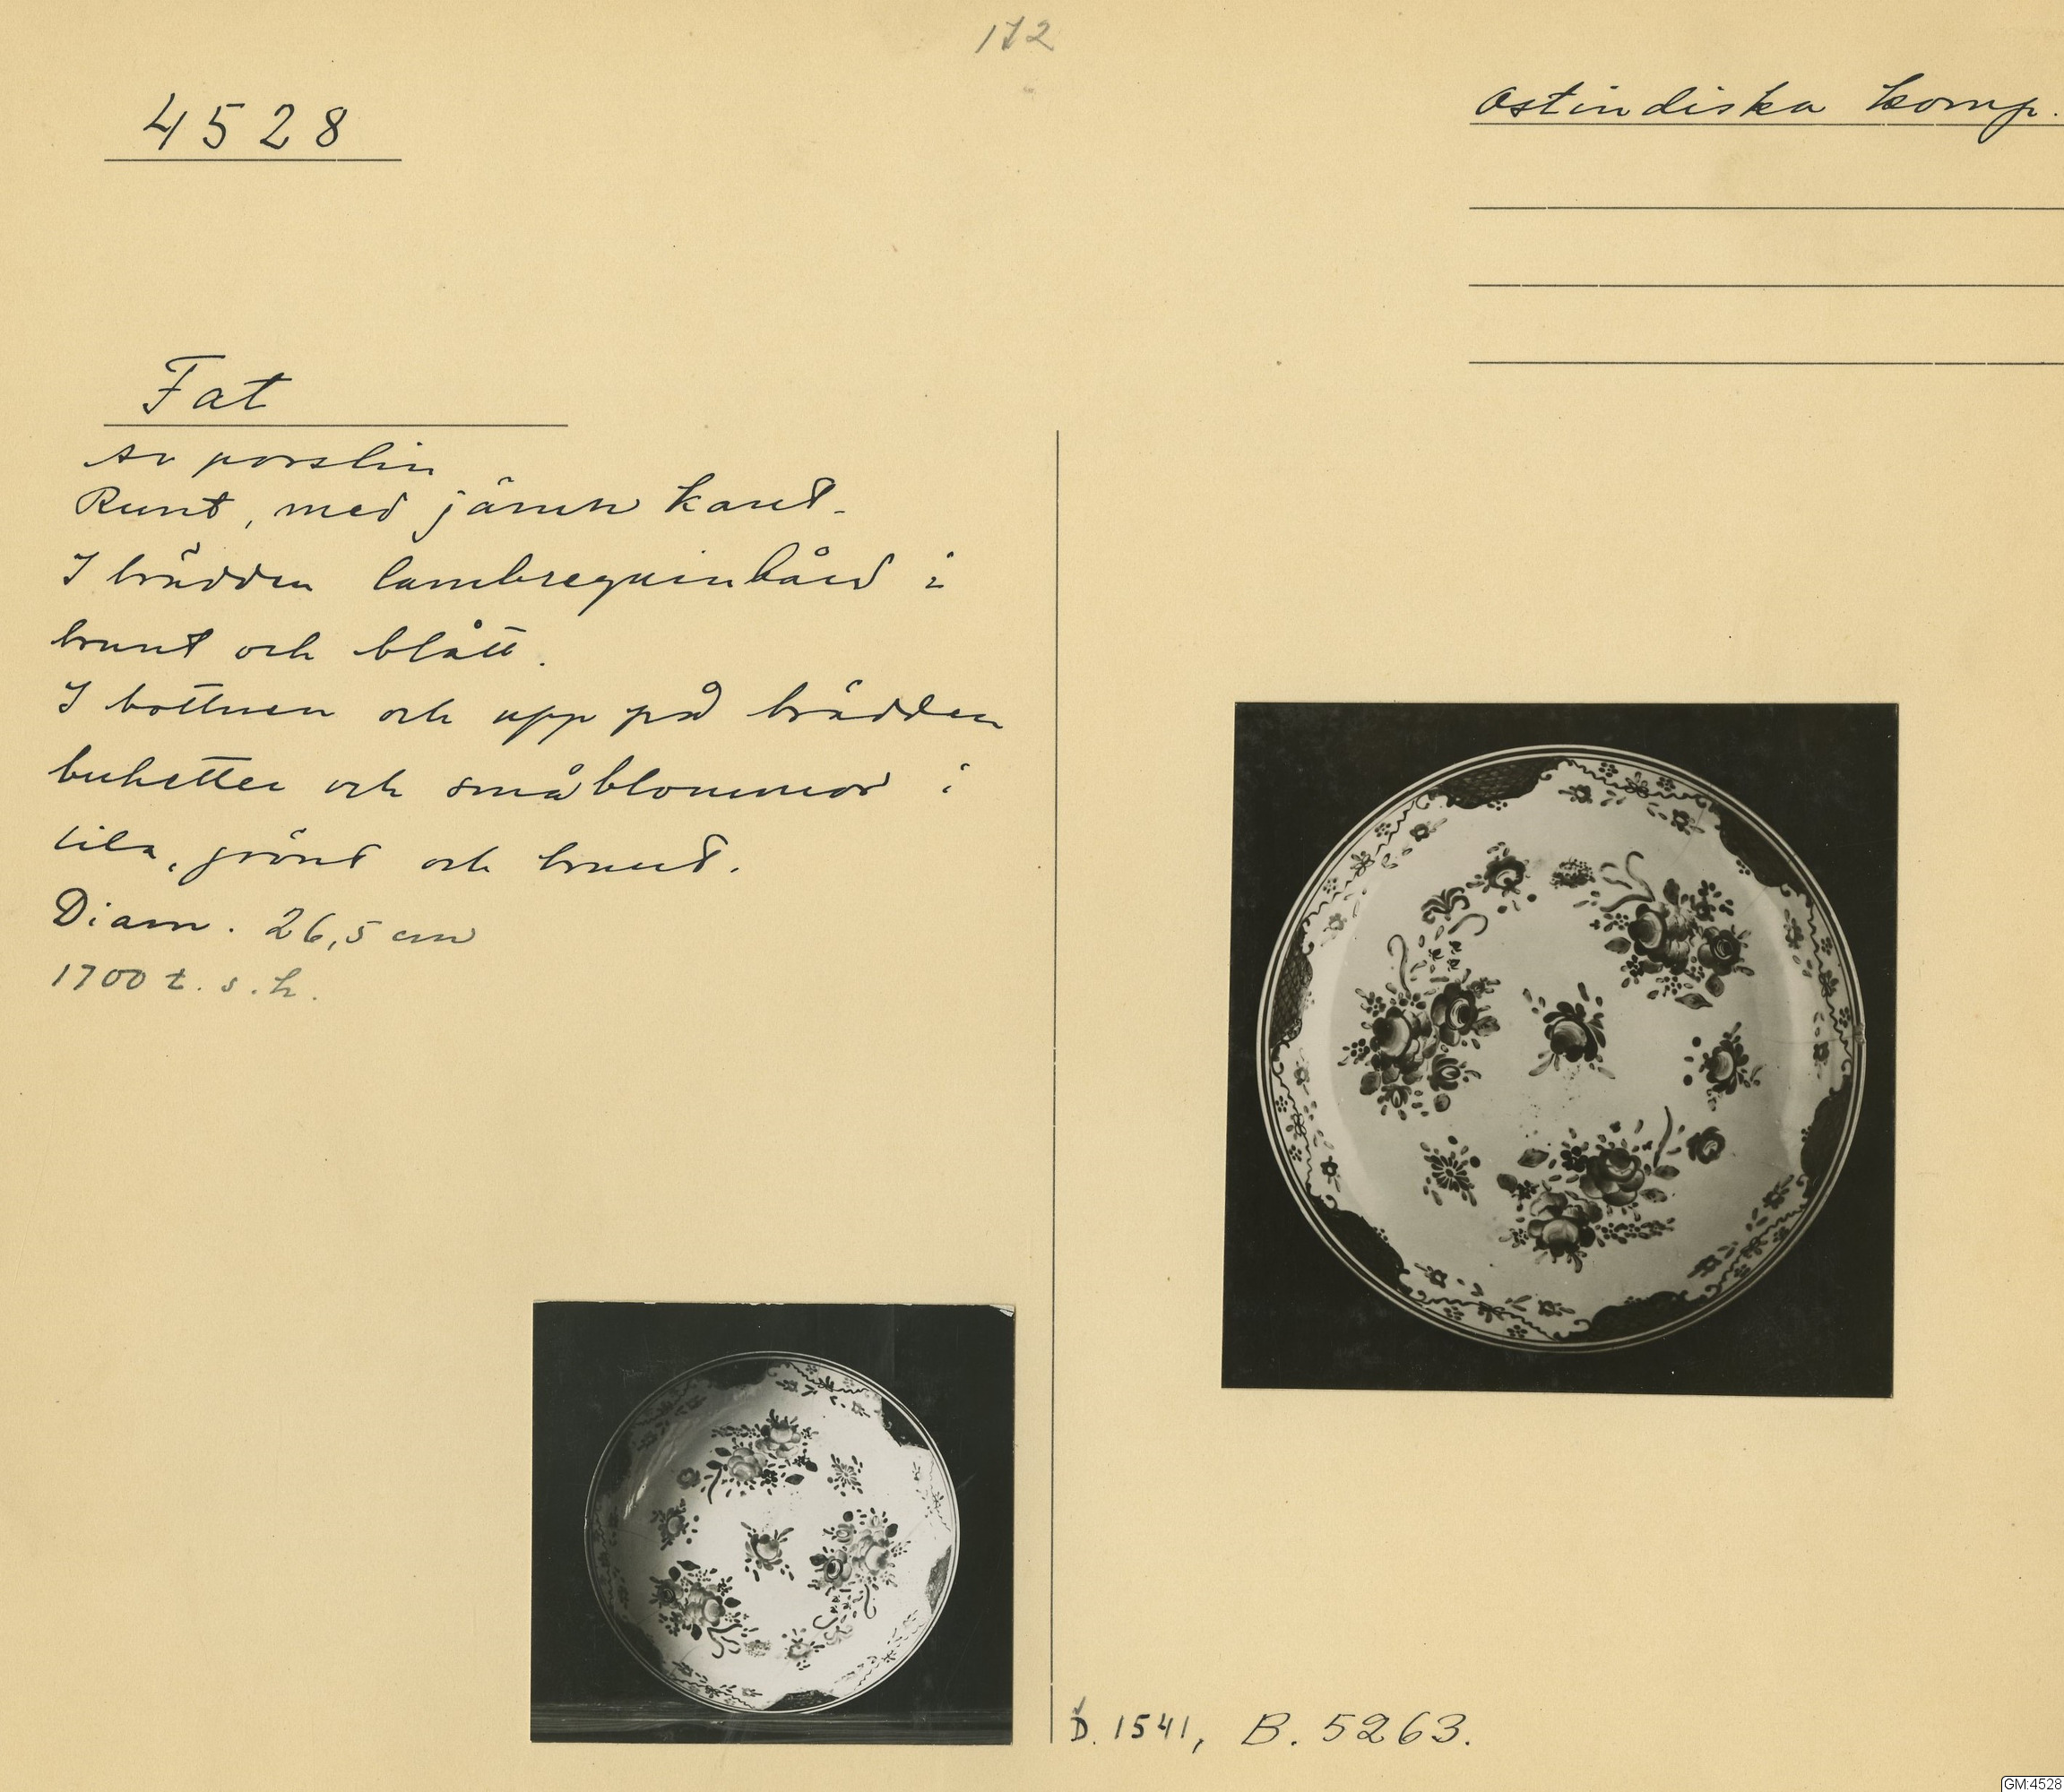 172
4528
Ostindiska komp.
Fat
Av porslin
Runt, med jämn kant.
I brädden lambrequinbård i
brunt och blått.
I bottnen och upp på brädden
buketter och småblommor i
lila, grönt och brunt.
Diam. 26,5 cm
1700 t. s. h.
D. 1541, B. 5263.
GM:4528